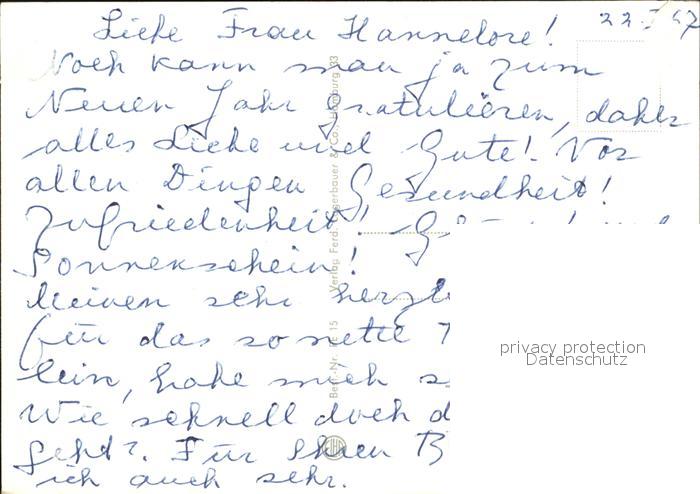 Liebe Frau Hannelore!
Noch kann man ja zum
Neuen Jahr gratulieren, daher
alles Liebe und Gute! Vor
allen Dingen Gesundheit!
Zufriedenheit!
Sonnenschein!
Meinen sehr
für das so nette
lein, habe mich
Wie schnell doch
geht? Für Ihren
ich auch sehr.
privacy protection
Datenschutz